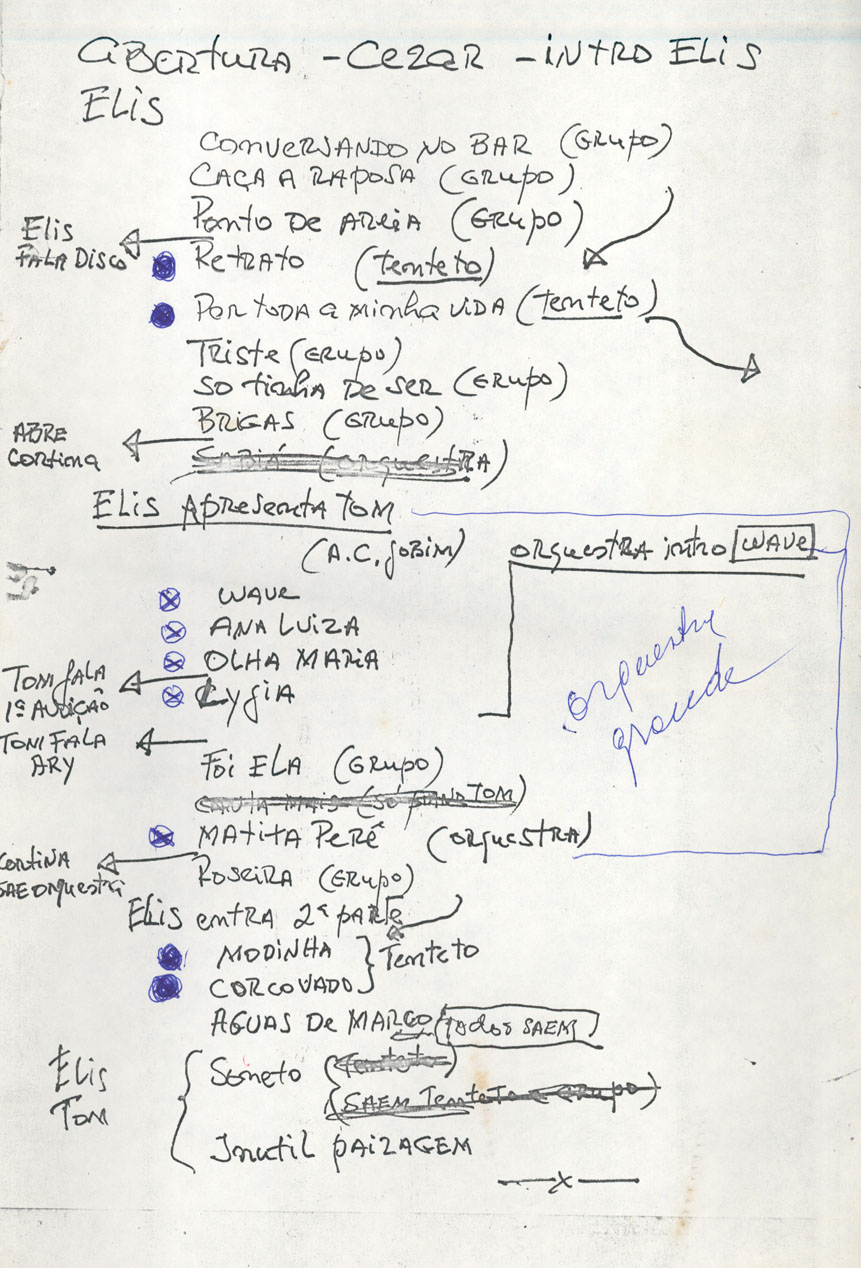 ABERTURA - CEZAR - INTRO ELIS
ELIS
CONVERSANDO NO BAR (GRUPO)
CAÇA A RAPOSA (GRUPO)
PONTO DE AREIA (GRUPO)
Elis
FALA DISCO
RETRATO (tenteto)
POR TODA a MINHA VIDA (tenteto)
TRISTE (GRUPO)
SO tinha DE SER (GRUPO)
BRIGAS (GRUPO)
ABRE
Cortina
SABIÁ (ORQUESTRA)
ELIS APRESENTA TOM
(A.C. JOBIM)
ORQUESTRA intro WAVE
WAVE
ANA LUIZA
OLHA MARIA
Lygia
orquestra
grande
TOM fala
1ª AUDIÇÃO
TOM FALA
ARY
FOI ELA (GRUPO)
(SÓ PIANO TOM)
MATITA PERÊ (ORQUESTRA)
CORTINA
SAE orquestra
ROSEIRA (GRUPO)
ELIS entra 2ª parte
MODINHA
CORCOVADO
Tenteto
ÁGUAS DE MARÇO (todos SAEM)
Elis
Tom
Soneto (tenteto)
(SAEM Tenteto e GRUPO)
Inutil PAIZAGEM
x